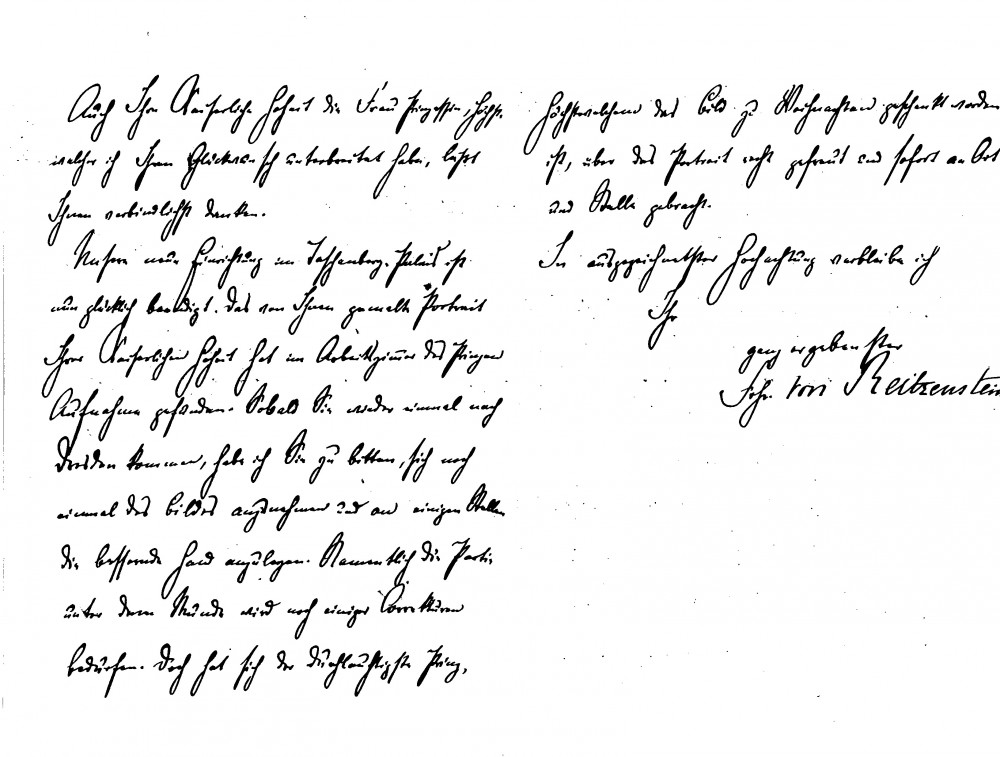 Auch Ihre Kaiserliche Hoheit die Frau Prinzessin, Höchst-
welcher ich Ihren Glückwunsch unterbreitet habe, läßt
Ihnen verbindlichst danken.
Unsere neue Einrichtung im Taschenberg-Palais ist
nun glücklich beendigt. Das von Ihnen gemalte Portrait
Ihrer Kaiserlichen Hoheit hat im Arbeitszimmer des Prinzen
Aufnahme gefunden. Sobald Sie wieder einmal nach
Dresden kommen, habe ich Sie zu bitten, sich noch
einmal des Bildes anzunehmen und an einigen Stellen
die bessernde Hand anzulegen. Namentlich die Partie
unter dem Munde wird noch einiger Correkturen
bedürfen. Doch hat sich der Durchlauchtigste Prinz,
Höchstwelchem das Bild zu Weihnachten geschenkt worden
ist, über das Portrait recht gefreut und sofort an Ort
und Stelle gebracht.
In ausgezeichnetster Hochachtung verbleibe ich
Ihr
ganz ergebenster
Frhr. von Reitzenstein